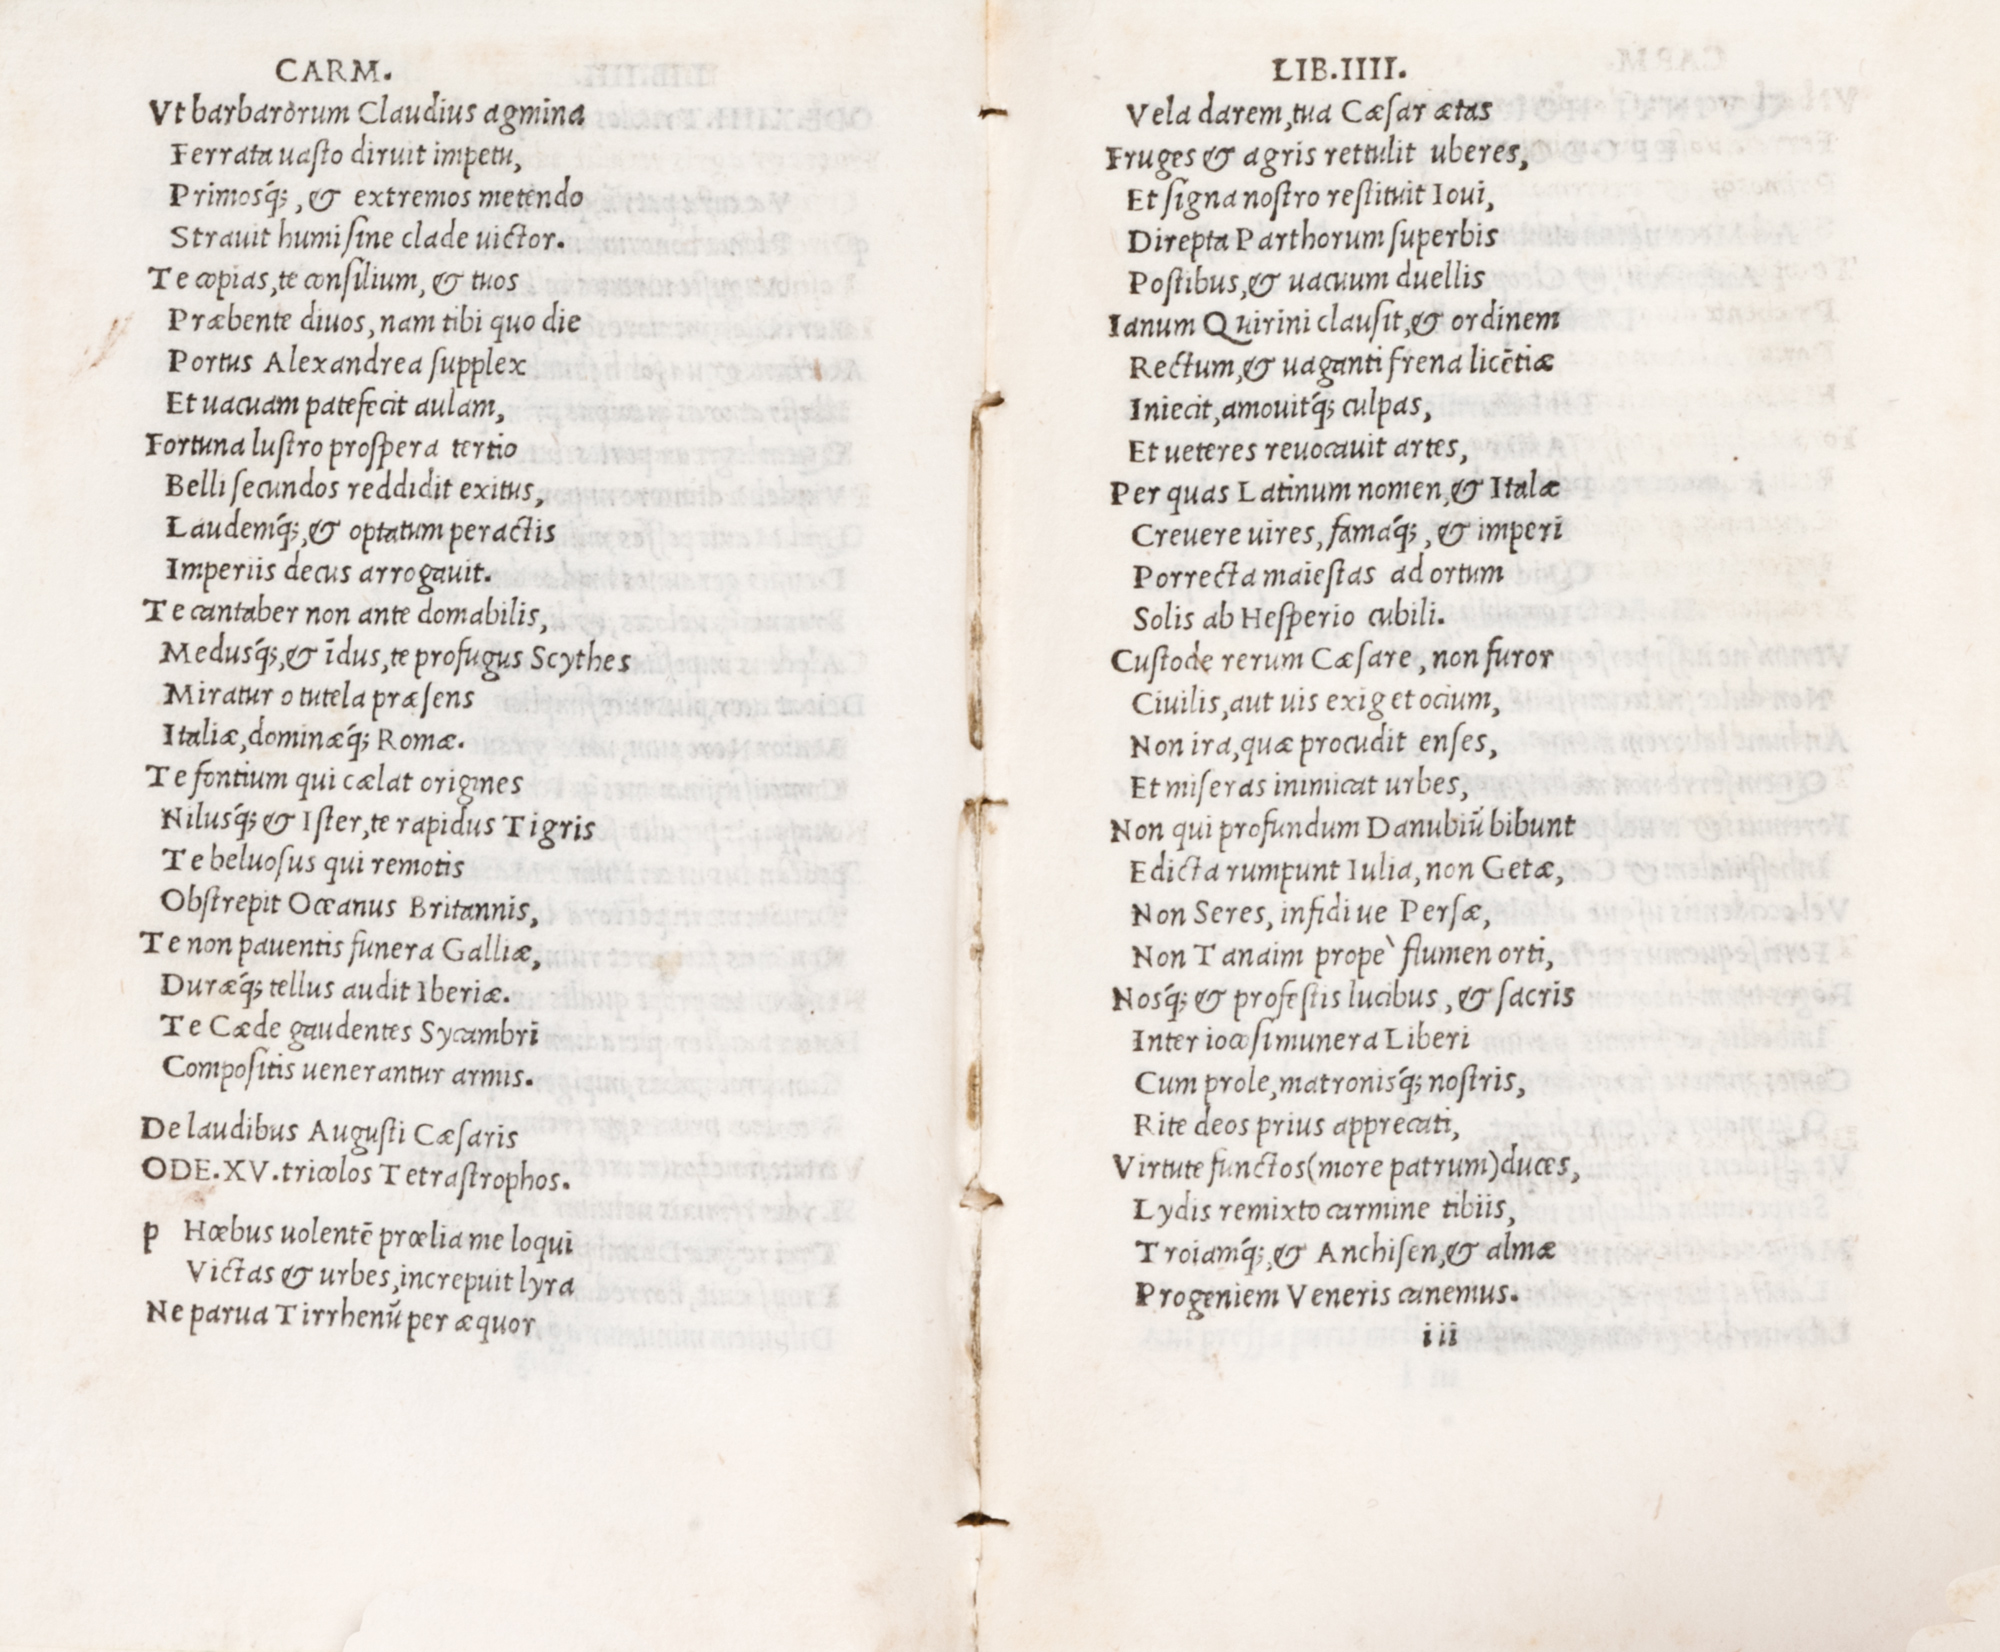 CARM.
Vt barbaròrum Claudius agmina
Ferrata uaſto diruit impetu,
Primosq́;, & extremos metendo
Strauit humi ſine clade uictor.
Te copias, te conſilium, & tuos
Præbente diuos, nam tibi quo die
Portus Alexandrea ſupplex
Et uacuam patefecit aulam,
Fortuna luſtro proſpera tertio
Belli ſecundos reddidit exitus,
Laudemq́;, & optatum peractis
Imperiis decus arrogauit.
Te cantaber non ante domabilis,
Medusq́;, & īdus, te profugus Scythes
Miratur o tutela præſens
Italiæ, dominæq́; Romæ.
Te fontium qui cælat origines
Nilusq́; & Iſter, te rapidus Tigris
Te beluoſus qui remotis
Obſtrepit Oceanus Britannis,
Te non pauentis funera Galliæ,
Duræq́; tellus audit Iberiæ.
Te Cæde gaudentes Sycambri
Compoſitis uenerantur armis.
De laudibus Auguſti Cæſaris
ODE.XV.tricolos Tetraſtrophos.
p Hœbus uolentē prœlia me loqui
Victas & urbes, increpuit lyra
Ne parua Tirrhenū per æquor
LIB.IIII.
Vela darem, tua Cæſar ætas
Fruges & agris rettulit uberes,
Et ſigna noſtro reſtituit Ioui,
Direpta Parthorum ſuperbis
Poſtibus, & uacuum duellis
Ianum Quirini clauſit, & ordinem
Rectum, & uaganti frena licētiæ
Iniecit, amouitq́; culpas,
Et ueteres reuocauit artes,
Per quas Latinum nomen, & Italæ
Creuere uires, famaq́;, & imperi
Porrecta maieſtas ad ortum
Solis ab Heſperio cubili.
Cuſtode rerum Cæſare, non furor
Ciuilis, aut uis exiget ocium,
Non ira, quæ procudit enſes,
Et miſeras inimicat urbes,
Non qui profundum Danubiū bibunt
Edicta rumpunt Iulia, non Getæ,
Non Seres, infidi ue Perſæ,
Non Tanaim prope` flumen orti,
Nosq́; & profeſtis lucibus, & ſacris
Inter iocoſi munera Liberi
Cum prole, matronisq́; noſtris,
Rite deos prius apprecati,
Virtute functos (more patrum) duces,
Lydis remixto carmine tibiis,
Troiamq́;, & Anchiſen, & almæ
Progeniem Veneris canemus.
iii